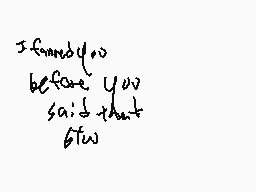 I fanned you
before you
said that
btw